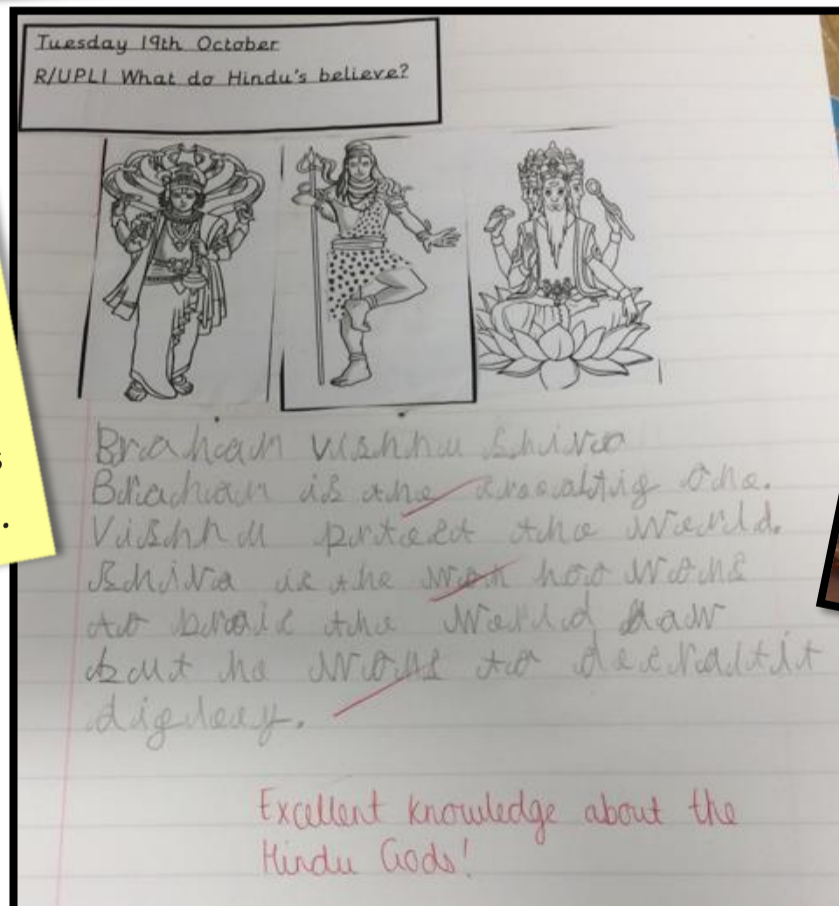 Tuesday 19th October
R/UPLI What do Hindu's believe?
s
.
Brahan Vishnu Shiva
Brahan is the one.
Vishnu protect the world.
Shiva is the hoo wons
to braic the world daw
but he wons to
Excellent knowledge about the
Hindu Gods!